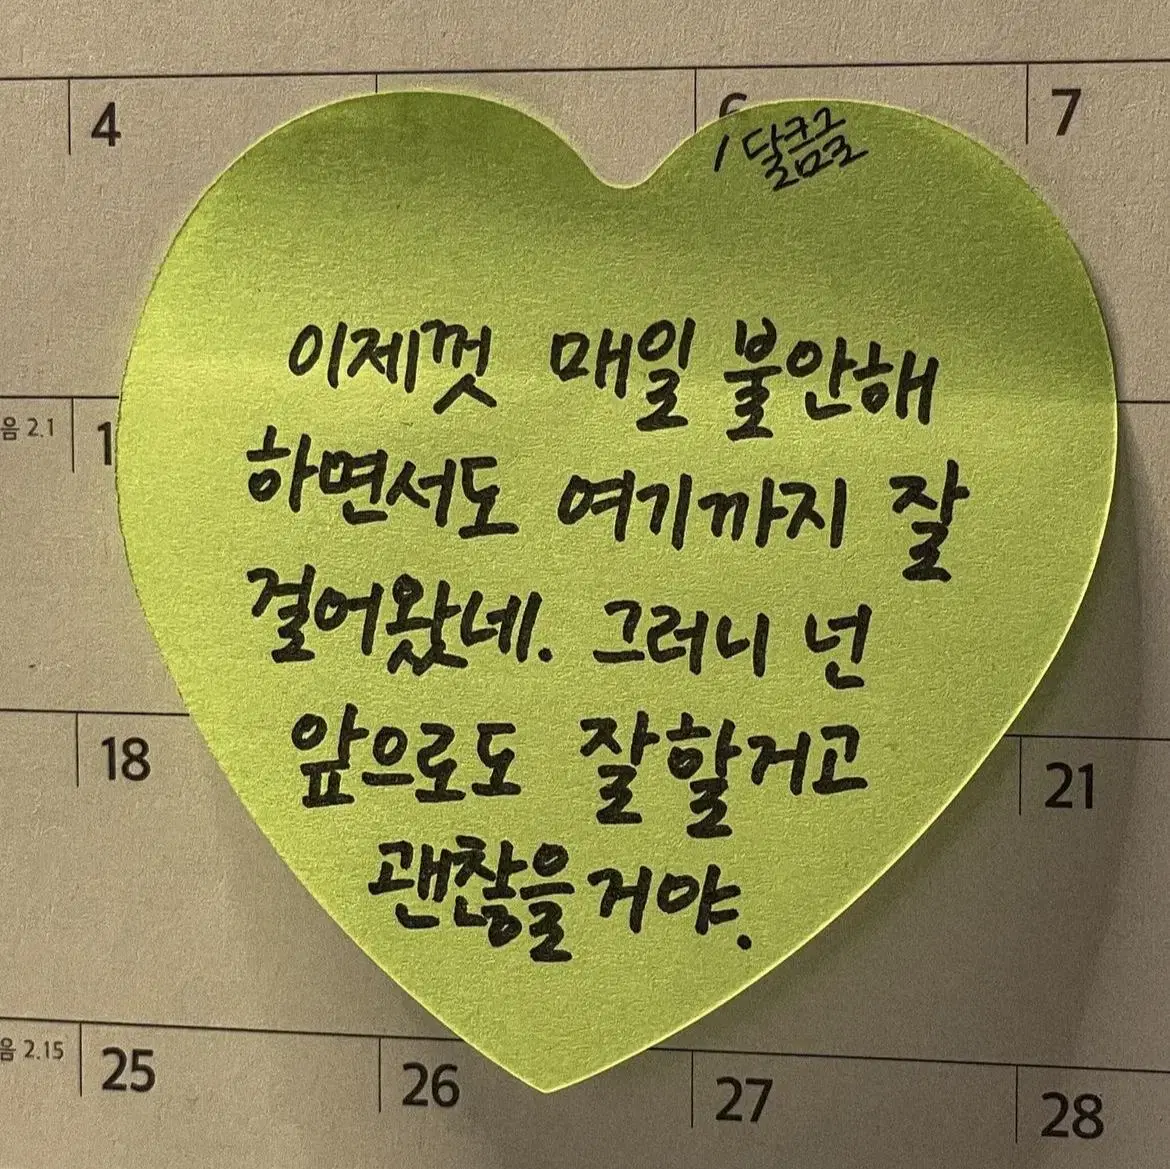 4
6
7
/달콤글
이제껏 매일 불안해
하면서도 여기까지 잘
걸어왔네. 그러니 넌
앞으로도 잘할거고
괜찮을거야.
음 2.1
1
18
21
음 2.15
25
26
27
28